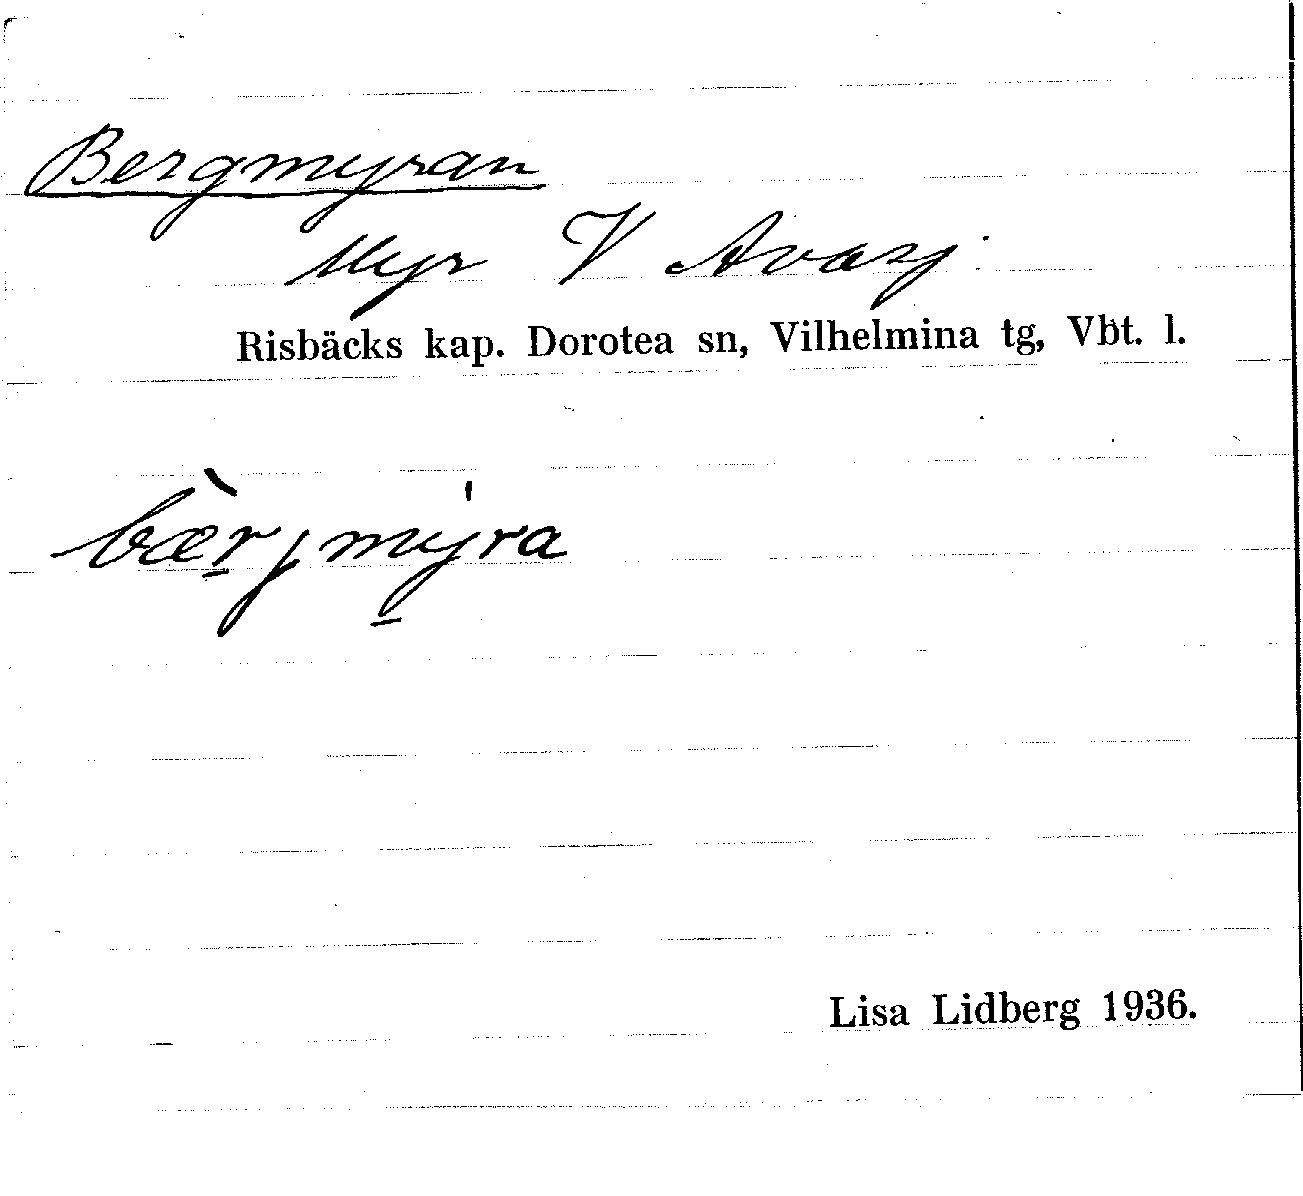 Bergmyran
Myr V Avasj.
Risbäcks kap. Dorotea sn, Vilhelmina tg, Vbt. l.
bæ̀r̲jmý̲ra
Lisa Lidberg 1936.